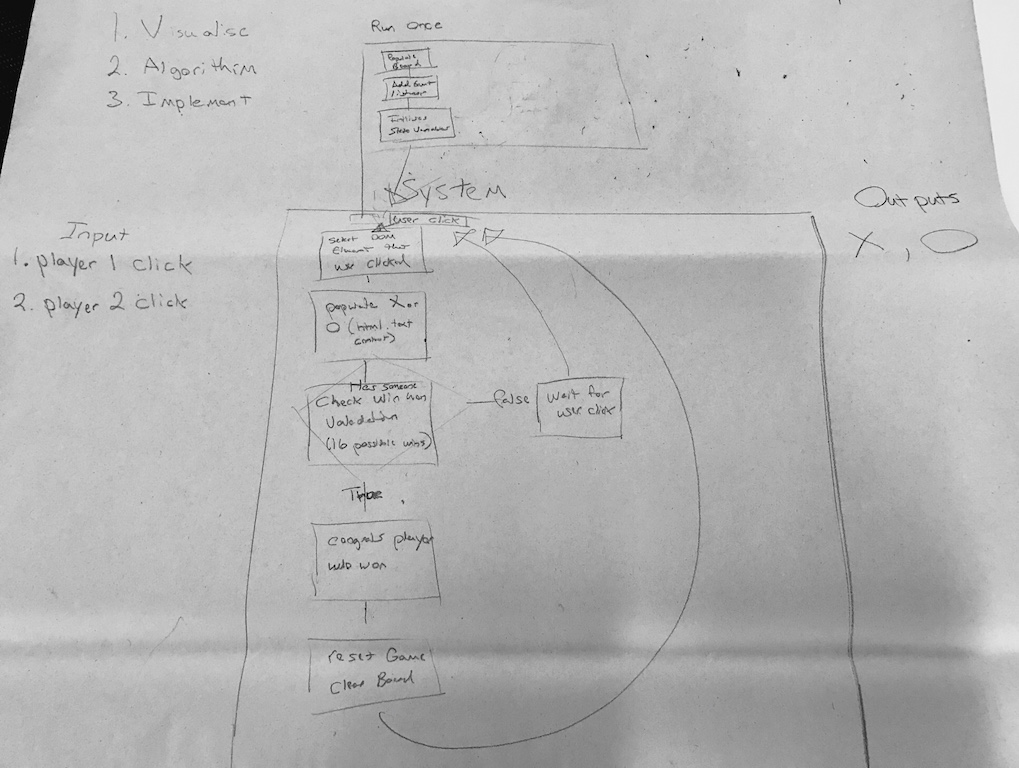 1. Visualise
2. Algorithim
3. Implement
Run once
Populate
Board
Add Event
Listener
State Variables
System
Input
1. player 1 click
2. player 2 click
Outputs
X, O
user click
select DOM
Element that
user clicked
populate X or
O (html.text
content)
Has someone
Check win
Validation
(16 possible wins)
false
wait for
user click
True
congrats player
who won
reset Game
Clear Board